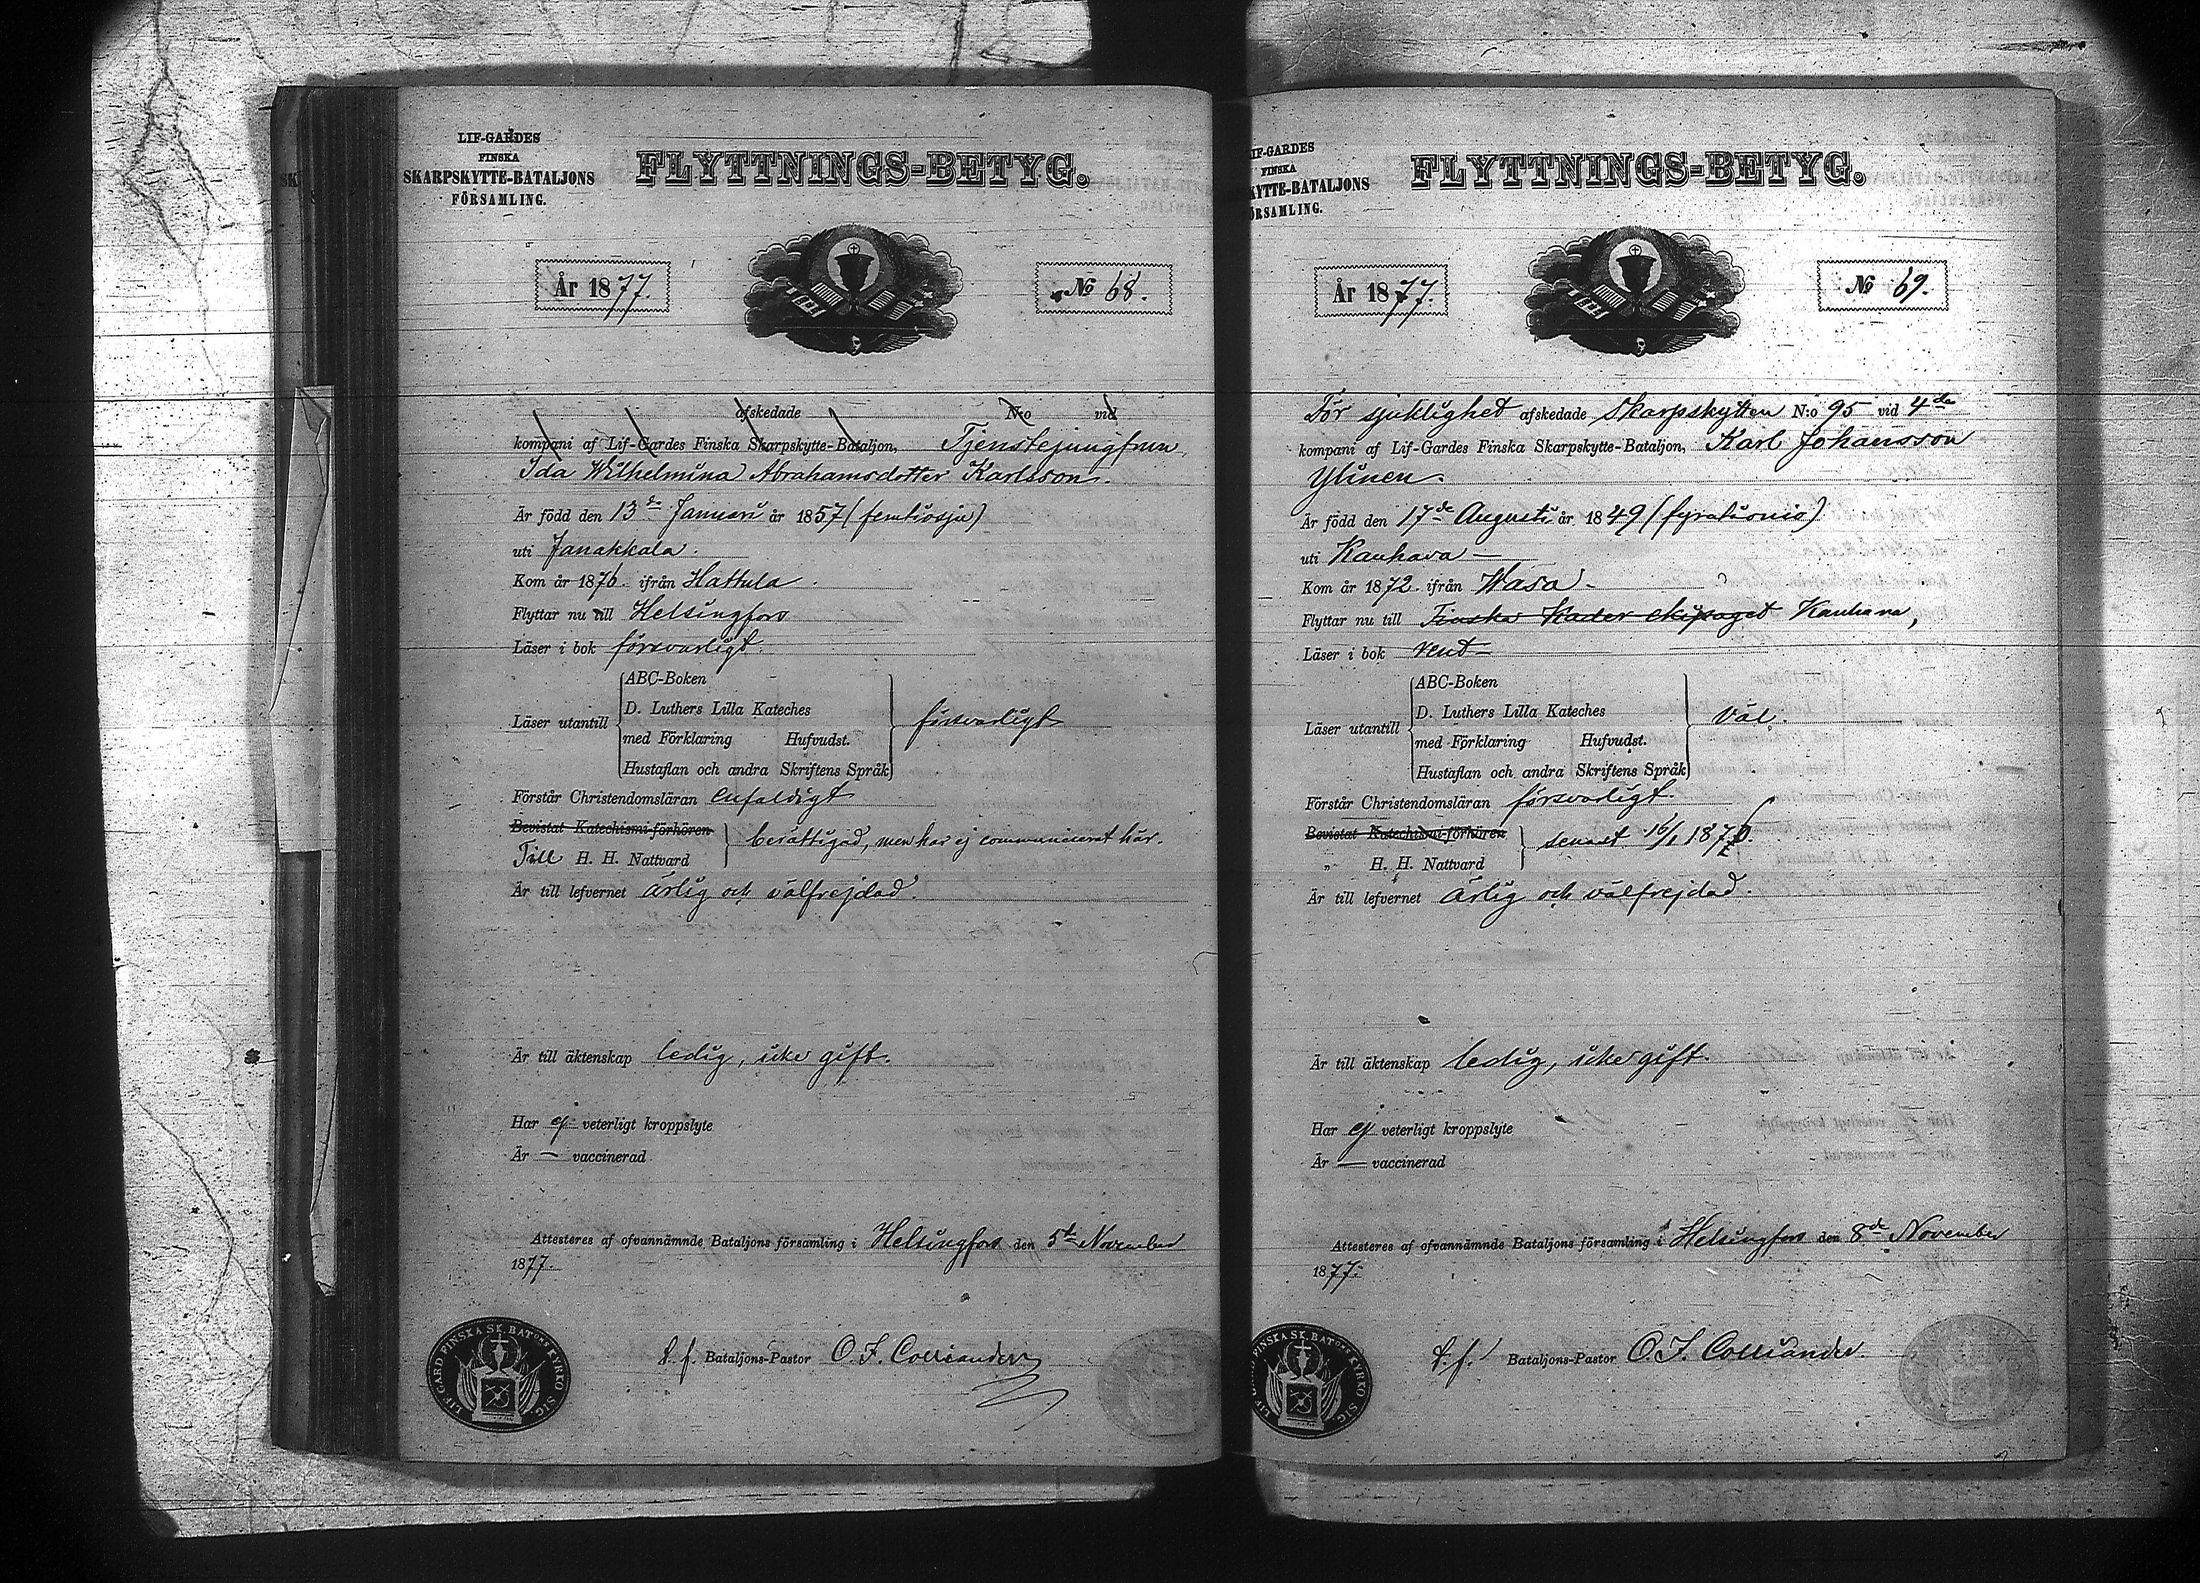 LIF-GARDES
FINSKA
SKARPSKYTTE-BATALJONS
FÖRSAMLING.
FLYTTNINGS-BETYG.
År 1877.
No 68.
afskedade N:o vid
kompani af Lif-Gardes Finska Skarpskytte-Bataljon, Tjenstejungfrun
Ida Wilhelmina Abrahamsdotter Karlsson.
Är född den 13de Januari år 1857 (femtiosju)
uti Janakkala.
Kom år 1876. ifrån Hattula.
Flyttar nu till Helsingfors
Läser i bok försvarligt.
ABC-Boken
D. Luthers Lilla Kateches
Läser utantill försvarligt
med Förklaring Hufvudst.
Hustaflan och andra Skriftens Språk
Förstår Christendomsläran enfaldigt
Bevistat Katechismi-förhören
Till H. H. Nattvard berättigad, men har ej communicerat här.
Är till lefvernet ärlig och välfrejdad.
Är till äktenskap ledig, icke gift.
Har ej veterligt kroppslyte
Är — vaccinerad
Attesteres af ofvannämnde Bataljons församling i Helsingfors den 5te November
1877.
t. f. Bataljons-Pastor O. F. Colliander
LIF GARD FINSKA SK. BATONS KYRKO SIG.
IF-GARDES
FINSKA
KYTTE-BATALJONS
ÖRSAMLING.
FLYTTNINGS-BETYG.
År 1877.
No 69.
För sjuklighet afskedade Skarpskytten N:o 95 vid 4de
kompani af Lif-Gardes Finska Skarpskytte-Bataljon, Karl Johansson
Ylinen.
Är född den 17de Augusti år 1849 (fyrationio)
uti Kauhava —
Kom år 1872. ifrån Wasa.
Flyttar nu till Finska Kader ekipaget Kauhava,
Läser i bok rent —
ABC-Boken
D. Luthers Lilla Kateches
Läser utantill väl.
med Förklaring Hufvudst.
Hustaflan och andra Skriftens Språk
Förstår Christendomsläran försvarligt.
Bevistat Katechismi-förhören
„ H. H. Nattvard senast 16/1 187
Är till lefvernet ärlig och välfrejdad.
Är till äktenskap ledig, icke gift.
Har ej veterligt kroppslyte
Är — vaccinerad
Attesteres af ofvannämnde Bataljons församling i Helsingfors den 8de November
1877.
t. f. Bataljons-Pastor O. F. Colliander
LIF GARD FINSKA SK. BATONS KYRKO SIG.